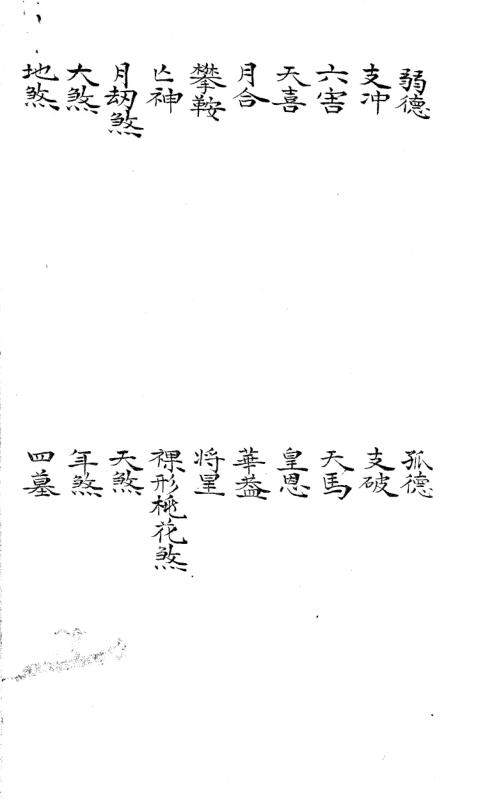 弱德
支冲
六害
天喜
月合
攀鞍
亡神
月劫煞
大煞
地煞
孤德
支破
天馬
皇恩
華蓋
将星
裸形桃花煞
天煞
年煞
四墓